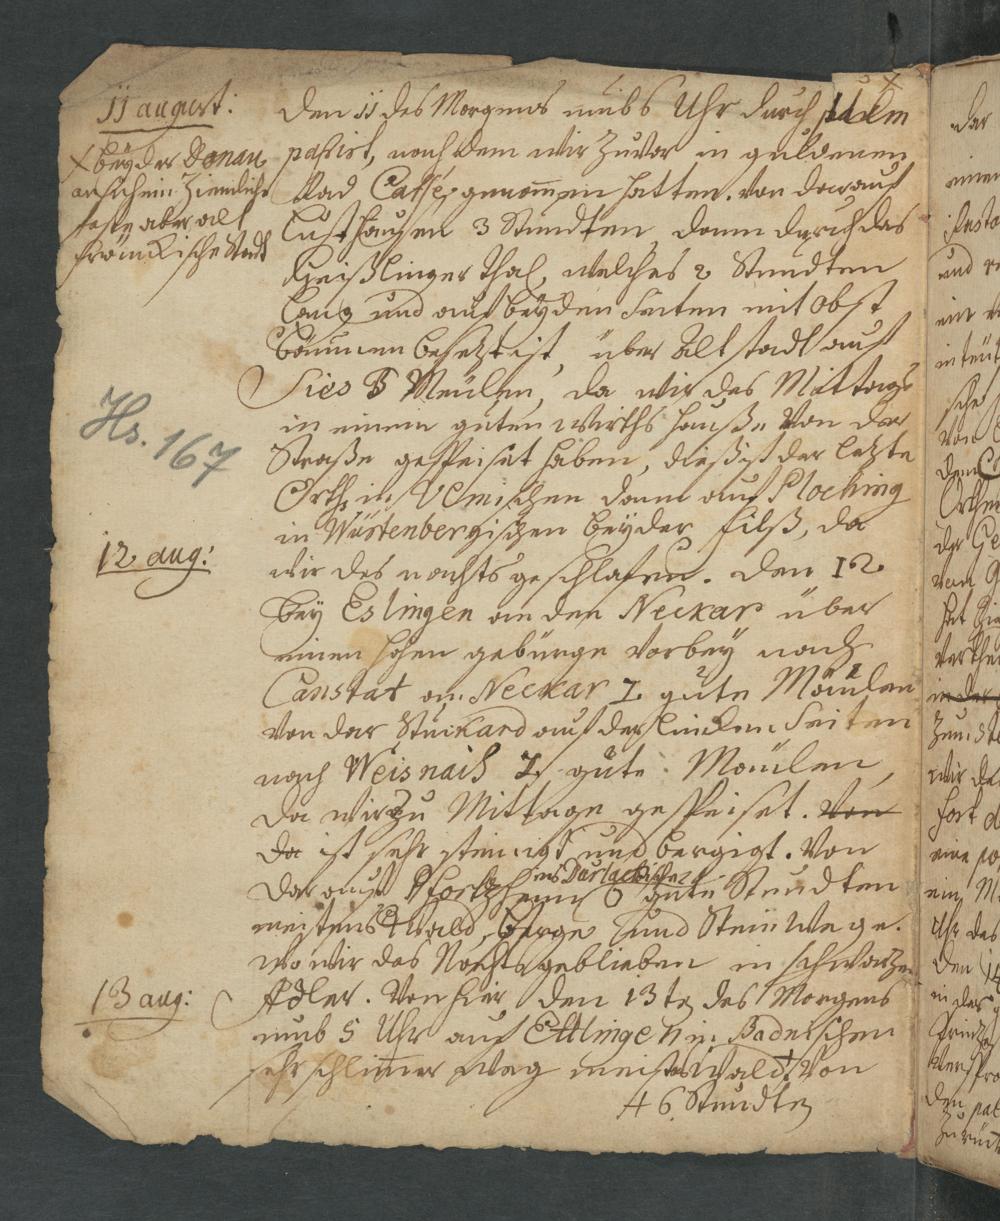 11 august:
X bey der Donau
ansichein Ziemliche
feste aber alt
fränckische Stadt
Den 11 des Morgens umb 6 Uhr durch Ulm X
paßirt, nach dem wir zuvor in guldenen
Rad Caffé genom̄en hatten. von dar auf
Lusthausen 3 Stundten dann durch das
Geißlinger Thal, welches 2 Stundten
lang und auf beyden Seiten mit obst
bäumen besetzt ist, über Altstadt auf
Sies 5 Meülen, da wir des Mittags
in einem guten wirths hauße von der
Straße gespeiset haben, dieß ist der letzte
Orth in Ulmischen dann auf Ploching
in Würtenbergischen bey der Filß, da
12 aug:
wir des nachts geschlafen. den 12.
bey Eslingen an den Neckar über
einen hohen gebürge vorbey nach
Canstat am Neckar 1. gute Meülen
von dar Stuckard auf der lincken Seiten
nach Weisnaih 1. gute Meülen,
da wir zu Mittage gespeiset. Von
da ist sehr steinigt und bergigt. Von
dar auf Pfortzheim ins Durlachische 6 gute Stundten
meistens Wald, berge und Steinwege.
wo wir des Nachts geblieben in schwartzen
13 aug:
Adler. Von hier den 13ten des Morgens
umb 5 Uhr auf Ettlingen in Badenschen
sehr schlim̄er weg meist Wald. Von
6 Stundten
Hs. 167